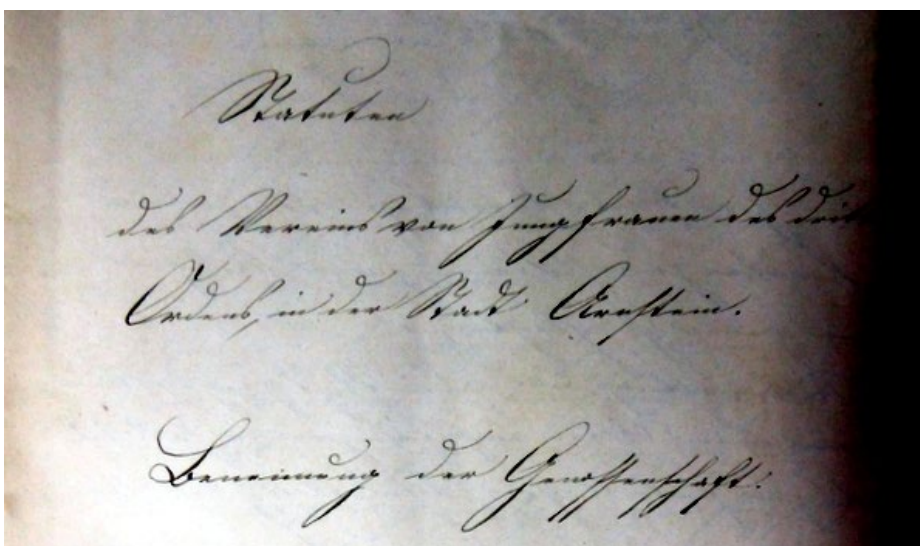 Statuten
des Vereins von Jungfrauen des drit
Ordens, in der Stadt Arnstein.
Benennung der Genossenschaft.